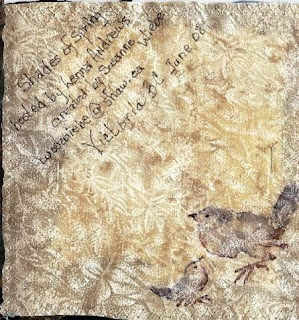 Shades of Spring
hosted by Lenna Andrews
created by Susanne
@ shaw.ca
Victoria BC June 08